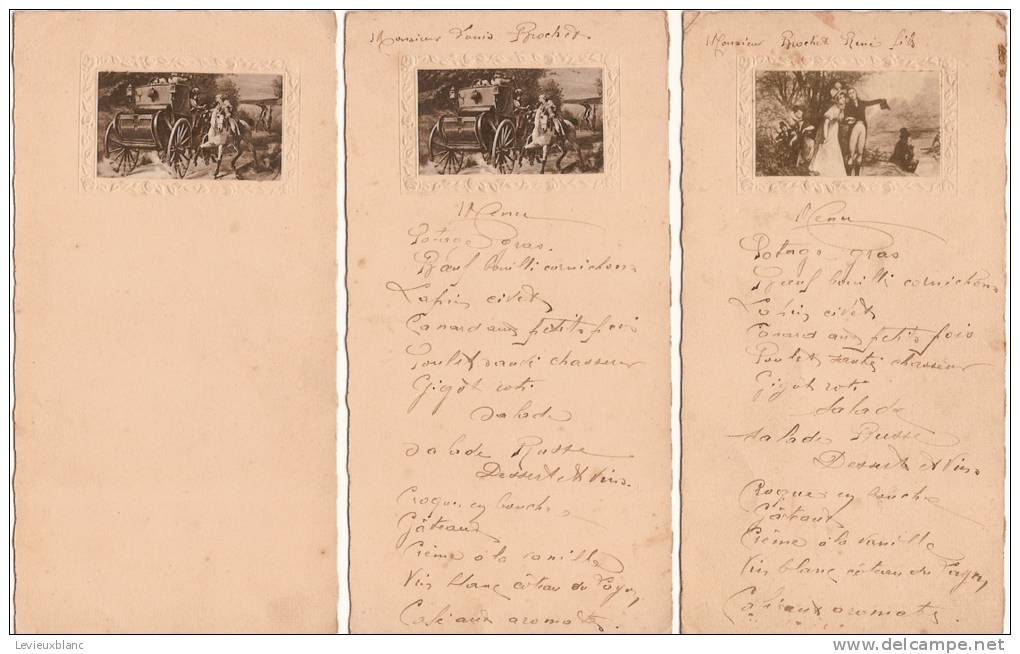 Monsieur Louis Brochet
Menu
Potage gras.
Bœuf bouilli cornichons
Lapin civet
Canard aux petits pois
Poulet sauté chasseur
Gigôt roti
Salade
Salade Russe
Dessert et Vins
Croque en bouche
Gâteaux
Crème à la vanille
Vin blanc côteau du Layon
Café aux aromates.
Monsieur Brochet René fils
Menu
Potage gras
Bœuf bouilli cornichons
Lapin civet
Canard aux petits pois
Poulet sauté chasseur
Gigôt roti
Salade
Salade Russe
Dessert et Vins
Croque en bouche
Gâteaux
Crème à la vanille
Vin blanc côteau du Layon
Café aux aromates.
Levieuxblanc
delcampe.net